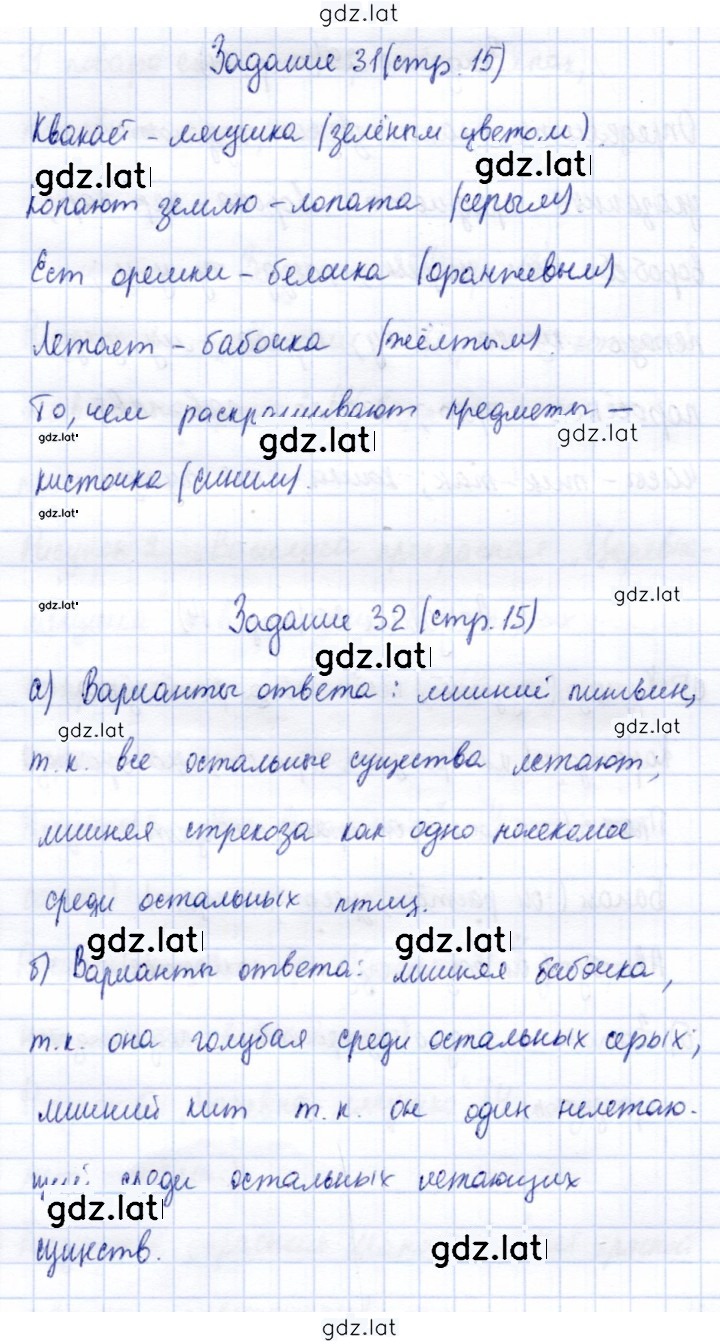 gdz.lat
Задание 31 (стр. 15)
Квакает - лягушка (зелёным цветом).
gdz.lat gdz.lat
копают землю - лопата (серым)
Ест орешки - белочка (оранжевым)
Летает - бабочка (жёлтым).
То, чем раскрашивают предметы —
gdz.lat gdz.lat gdz.lat
кисточка (синим).
gdz.lat
gdz.lat gdz.lat
Задание 32 (стр. 15)
gdz.lat
а) Варианты ответа: лишний пингвин,
gdz.lat gdz.lat
т.к. все остальные существа летают,
лишняя стрекоза как одно насекомое
среди остальных птиц.
gdz.lat gdz.lat
б) Варианты ответа: лишняя бабочка,
т.к. она голубая среди остальных серых;
лишний кит т.к. он один нелетаю-
щий среди остальных летающих
gdz.lat
существ.
gdz.lat
gdz.lat